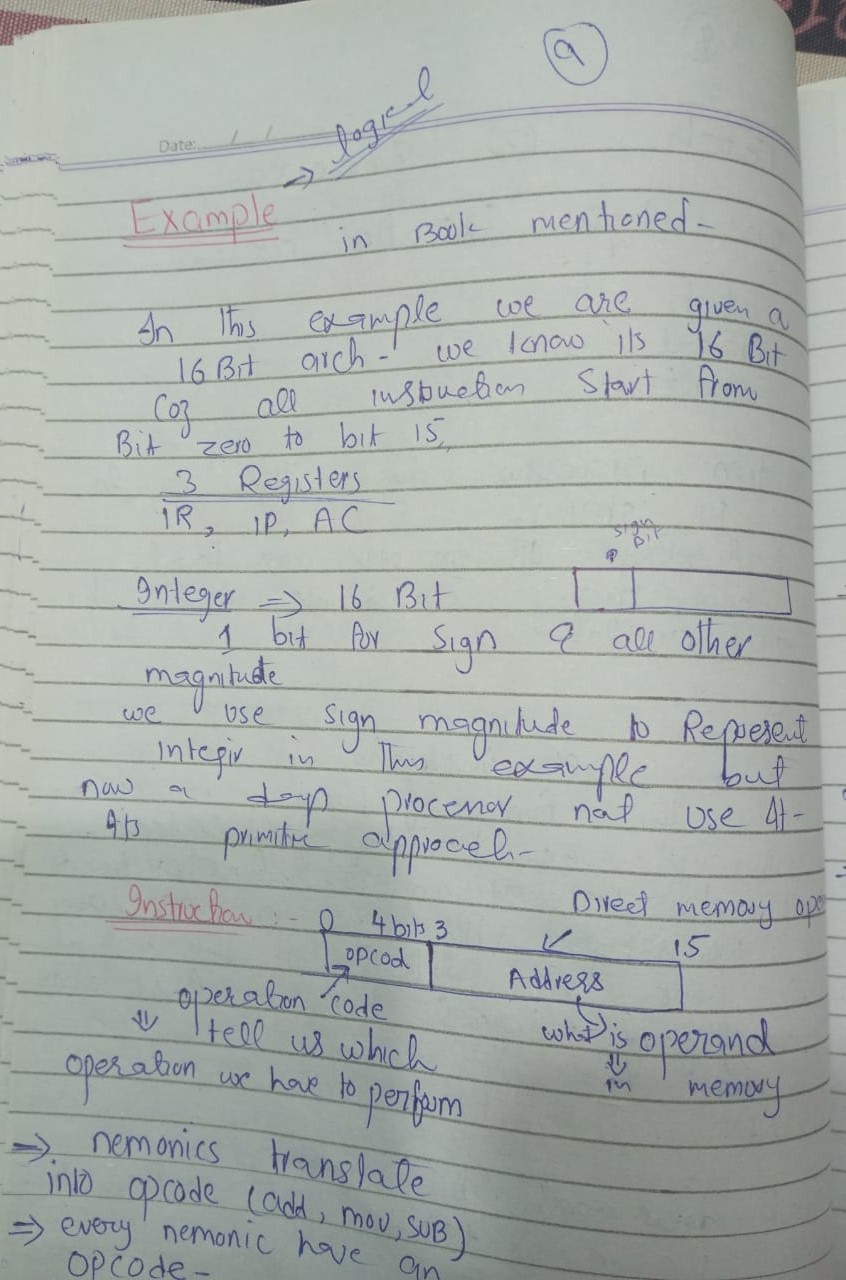 9
Date: / /
→ logical
Example
in Book mentioned-
In this example we are given a
16 Bit arch- we know its 16 Bit
Coz all instruction Start from
Bit zero to bit 15
3 Registers
IR, IP, AC
sign bit
Integer ⇒ 16 Bit
1 bit for sign & all other
magnitude
we use sign magnitude to Represent
integir in This example but
now a days processor not use it-
Its primitive approach-
Direct memory ope
Instruction :- 0 4 bits 3 15
opcod Address
operation code what is operand
⇓ tell us which ⇓
operation we have to perform in memory
⇒ nemonics translate
into opcode (add, mov, SUB)
⇒ every nemonic have an
OPCode-